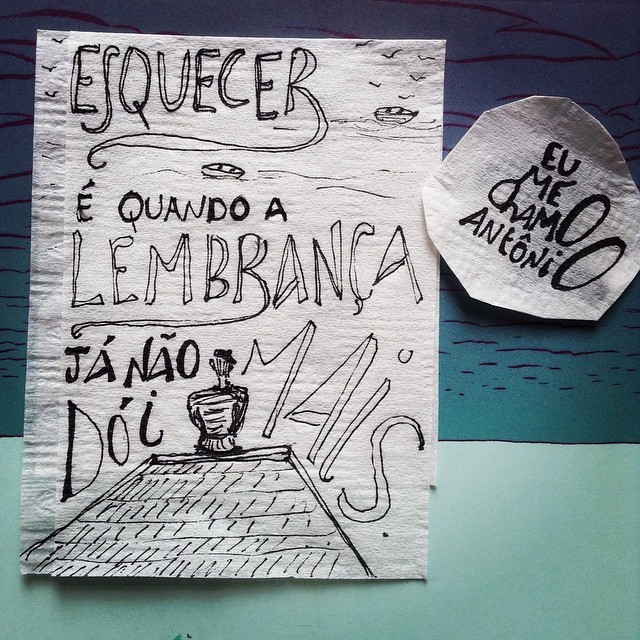 ESQUECER
É QUANDO A
LEMBRANÇA
JÁ NÃO MAIS
DÓI
EU
ME
CHAMO
ANTÔNIO